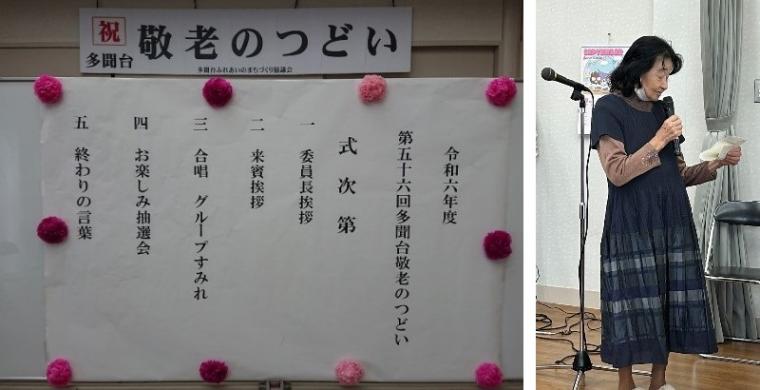 祝
多聞台
敬老のつどい
多聞台ふれあいのまちづくり協議会
令和六年度
第五十六回多聞台敬老のつどい
式次第
一 委員長挨拶
二 来賓挨拶
三 合唱 グループすみれ
四 お楽しみ抽選会
五 終わりの言葉